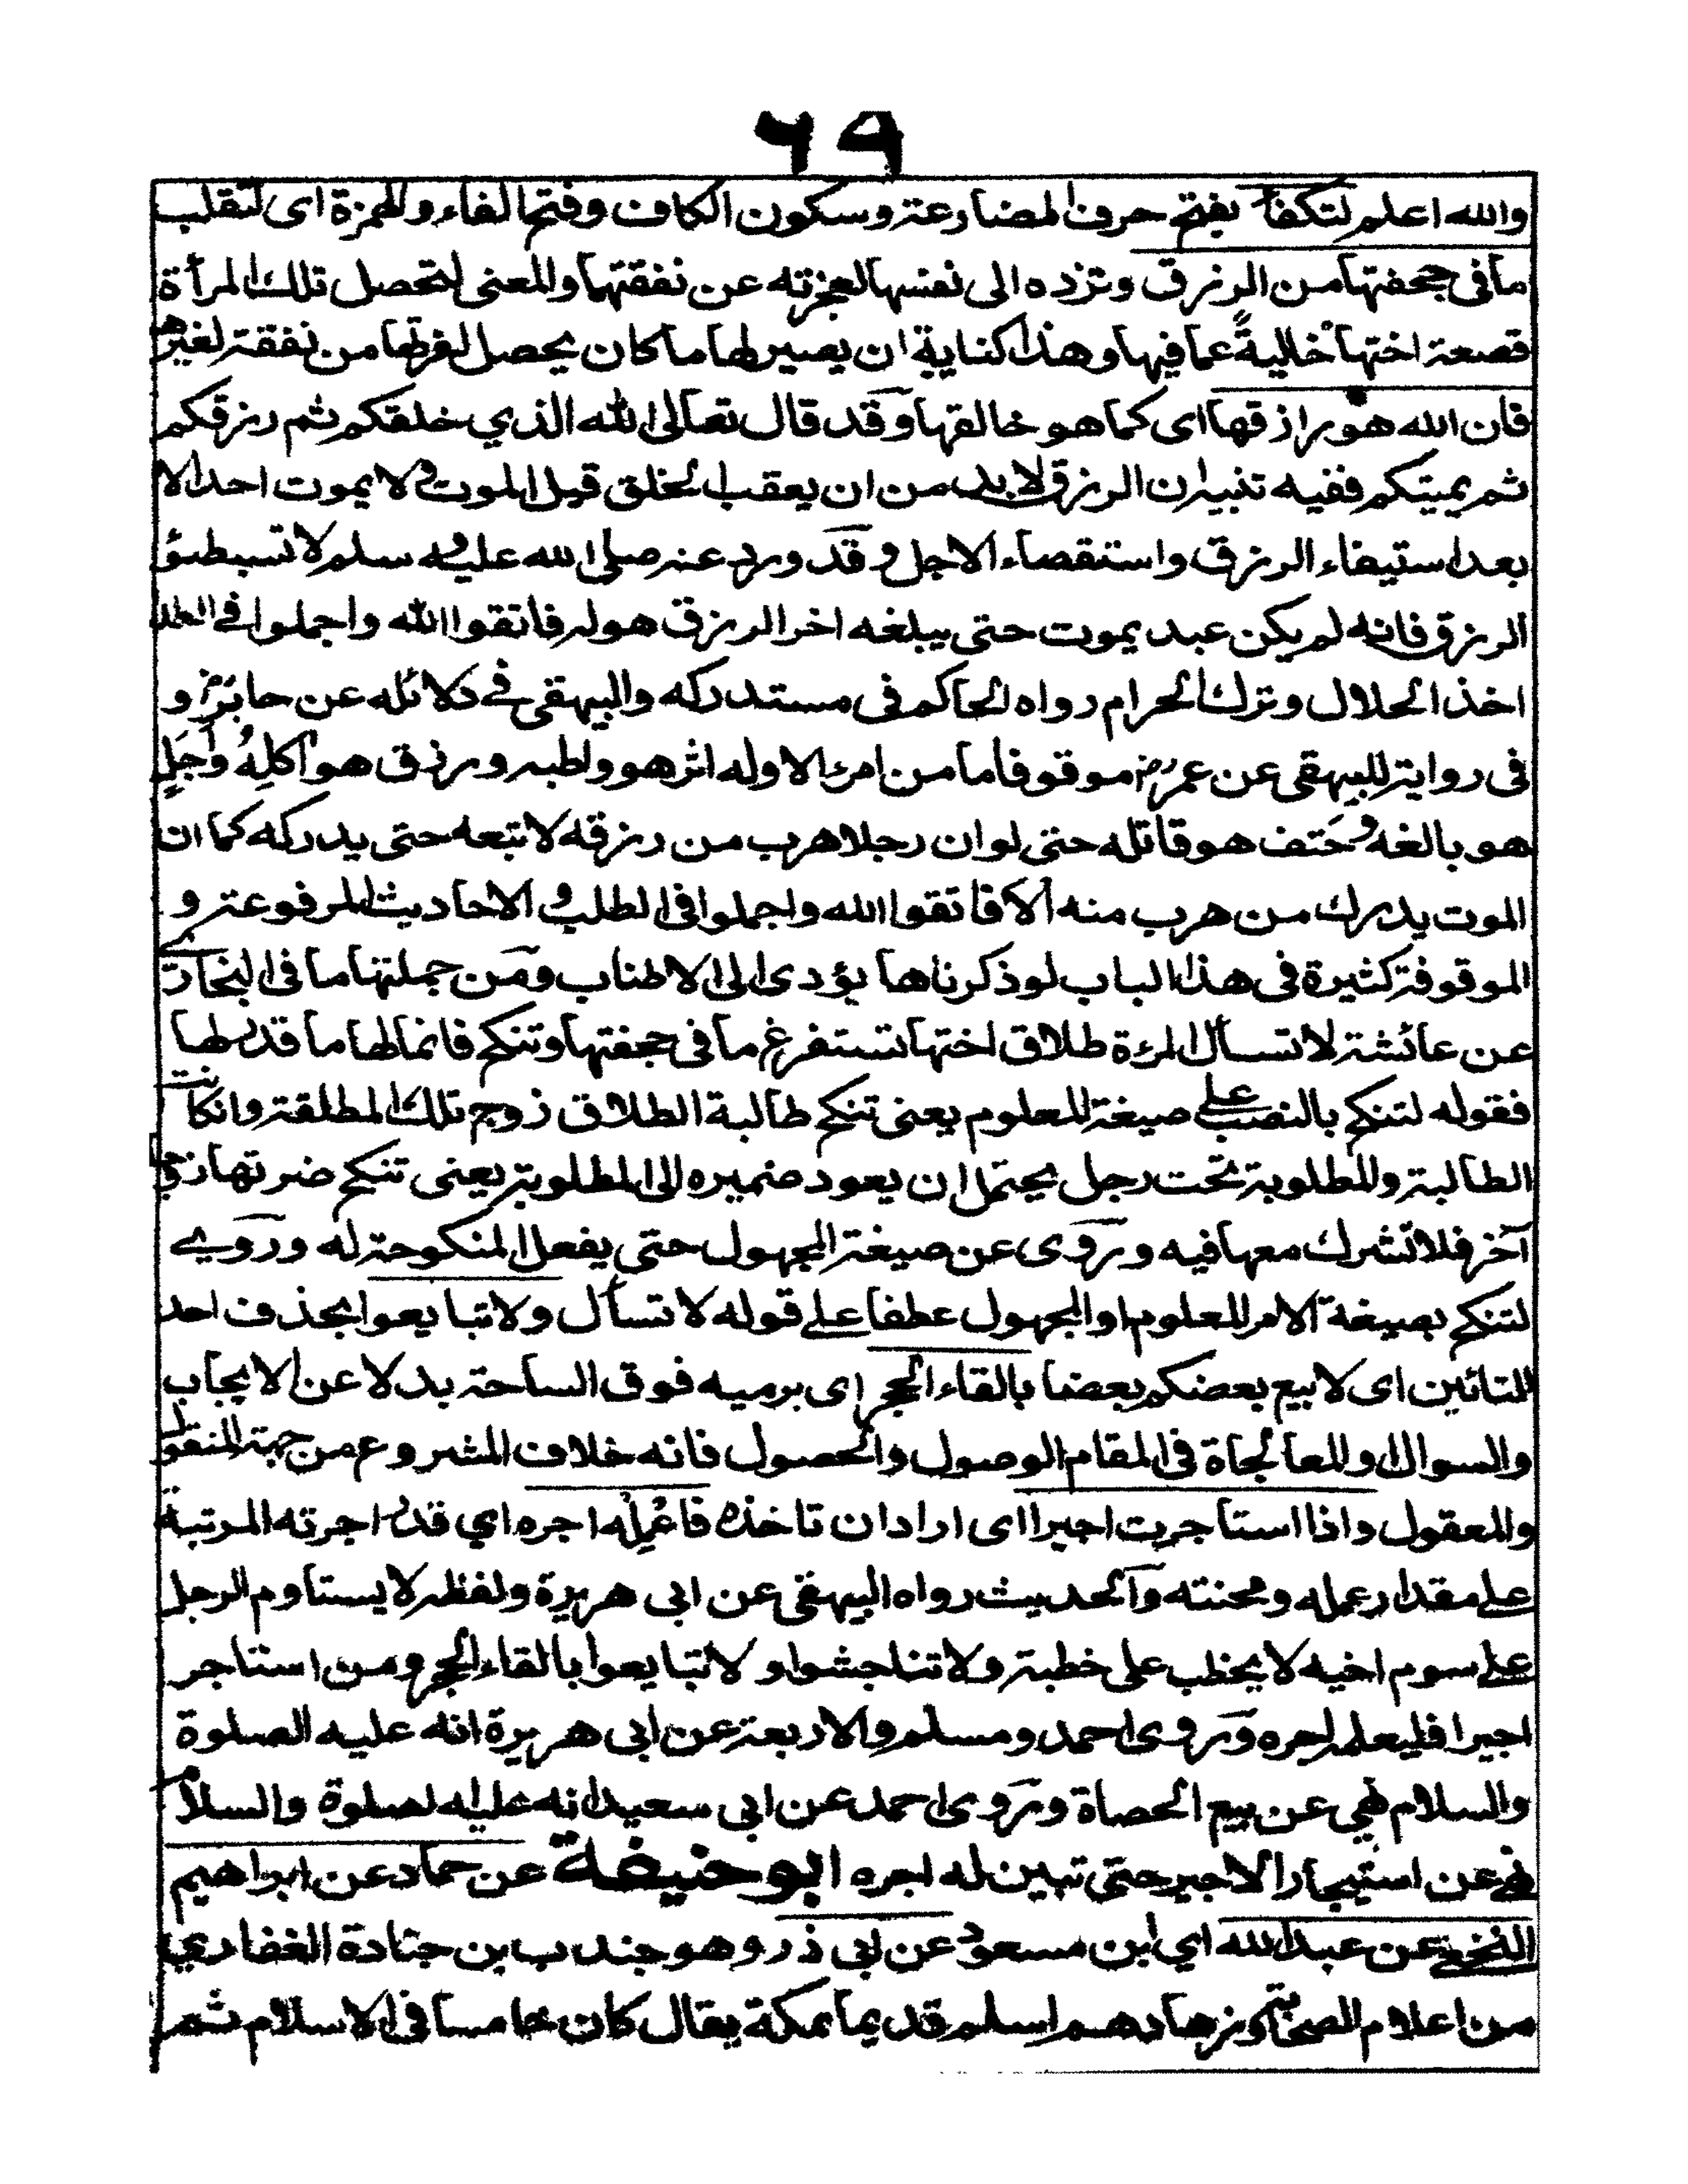 ٦٩
والله اعلم لتكفأ بفتح حرف المضارعة وسكون الكاف وفتح الفاء والهمزة اى لتقلب
ما فى جحفتها من الرزق وتزده الى نفسها لعجزته عن نفقتها والمعنى لتحصل تلك المرأة
قصعة اختها خالية عما فيها وهذا كناية ان يصير لها ما كان يحصل لضرتها من نفقة لغيرها
فان الله هو رازقها اى كما هو خالقها وقد قال تعالى الله الذي خلقكم ثم رزقكم
ثم يميتكم ففيه تنبيه ان الرزق لا بد من ان يعقب الخلق قبل الموت ولا يموت احد الا
بعد استيفاء الرزق واستنقصاء الاجل وقد ورد عنه صلى الله عليه وسلم لا تسبطئو
الرزق فانه لم يكن عبد يموت حتى يبلغه اخر الرزق هو له فاتقوا الله واجملوا فى الطلب
اخذ الحلال وترك الحرام رواه الحاكم فى مستدركه والبيهقى فى دلائله عن جابر رض و
فى رواية للبيهقى عن عمر رض موقوفا ما من امرء الا وله اثر هو واطبه ورزق هو آكله واجل
هو بالغه وحتف هو قاتله حتى لو ان رجلا هرب من رزقه لاتبعه حتى يدركه كما ان
الموت يدرك من هرب منه الا فاتقوا الله واجملوا فى الطلب والاحاديث المرفوعة و
الموقوفة كثيرة فى هذا الباب لو ذكرناها يؤدى الى الاطناب ومن جملتها ما فى البخارى
عن عائشة لا تسأل المرءة طلاق اختها تستفرغ ما فى جحفتها وتنكح فانما لها ما قدر لها
فقوله لتنكح بالنصب على صيغة المعلوم يعنى تنكح طالبة الطلاق زوج تلك المطلقة وان كانت
الطالبة والمطلوبة تحت رجل يحتمل ان يعود ضميره الى المطلوبة يعنى تنكح ضرتها زوجا
آخر فلا تشرك معها فيه وروى عن صيغة المجهول حتى يفعل المنكوحة له وروى
لتنكح بصيغة الامر للمعلوم او المجهول عطفا على قوله لا تسأل ولا تبايعوا بحذف احد
التائين اى لا بيع بعضكم بعضا بالقاء الحجر اى برميه فوق الساحة بدلا عن الايجاب
والسوال والمعالجاة فى المقام الوصول والحصول فانه خلاف المشروع من جهة المنقول
والمعقول واذا استاجرت اجيرا اى اراد ان تاخذه فاعمله اجره اي قدر اجرته المرتبة
على مقدار عمله ومحنته والحديث رواه البيهقى عن ابى هريرة ولفظه لا يستاوم الرجل
على سوم اخيه لا يخطب على خطبة ولا تناجشوا ولا تبايعوا بالقاء الحجر ومن استاجر
اجيرا فليعلمه اجره وروى احمد ومسلم والاربعة عن ابى هريرة انه عليه الصلوة
والسلام نهي عن بيع الحصاة وروى احمد عن ابى سعيد انه عليه لصلوة والسلام
نهى عن استيجار الاجير حتى تبين له اجره ابو حنيفة عن حماد عن ابراهيم
النخعى عن عبد الله اي ابن مسعود عن ابى ذر وهو جندب بن جنادة الغفاري
من اعلام الصحابة وزهادهم اسلم قديما بمكة يقال كان خامسا فى الاسلام ثم